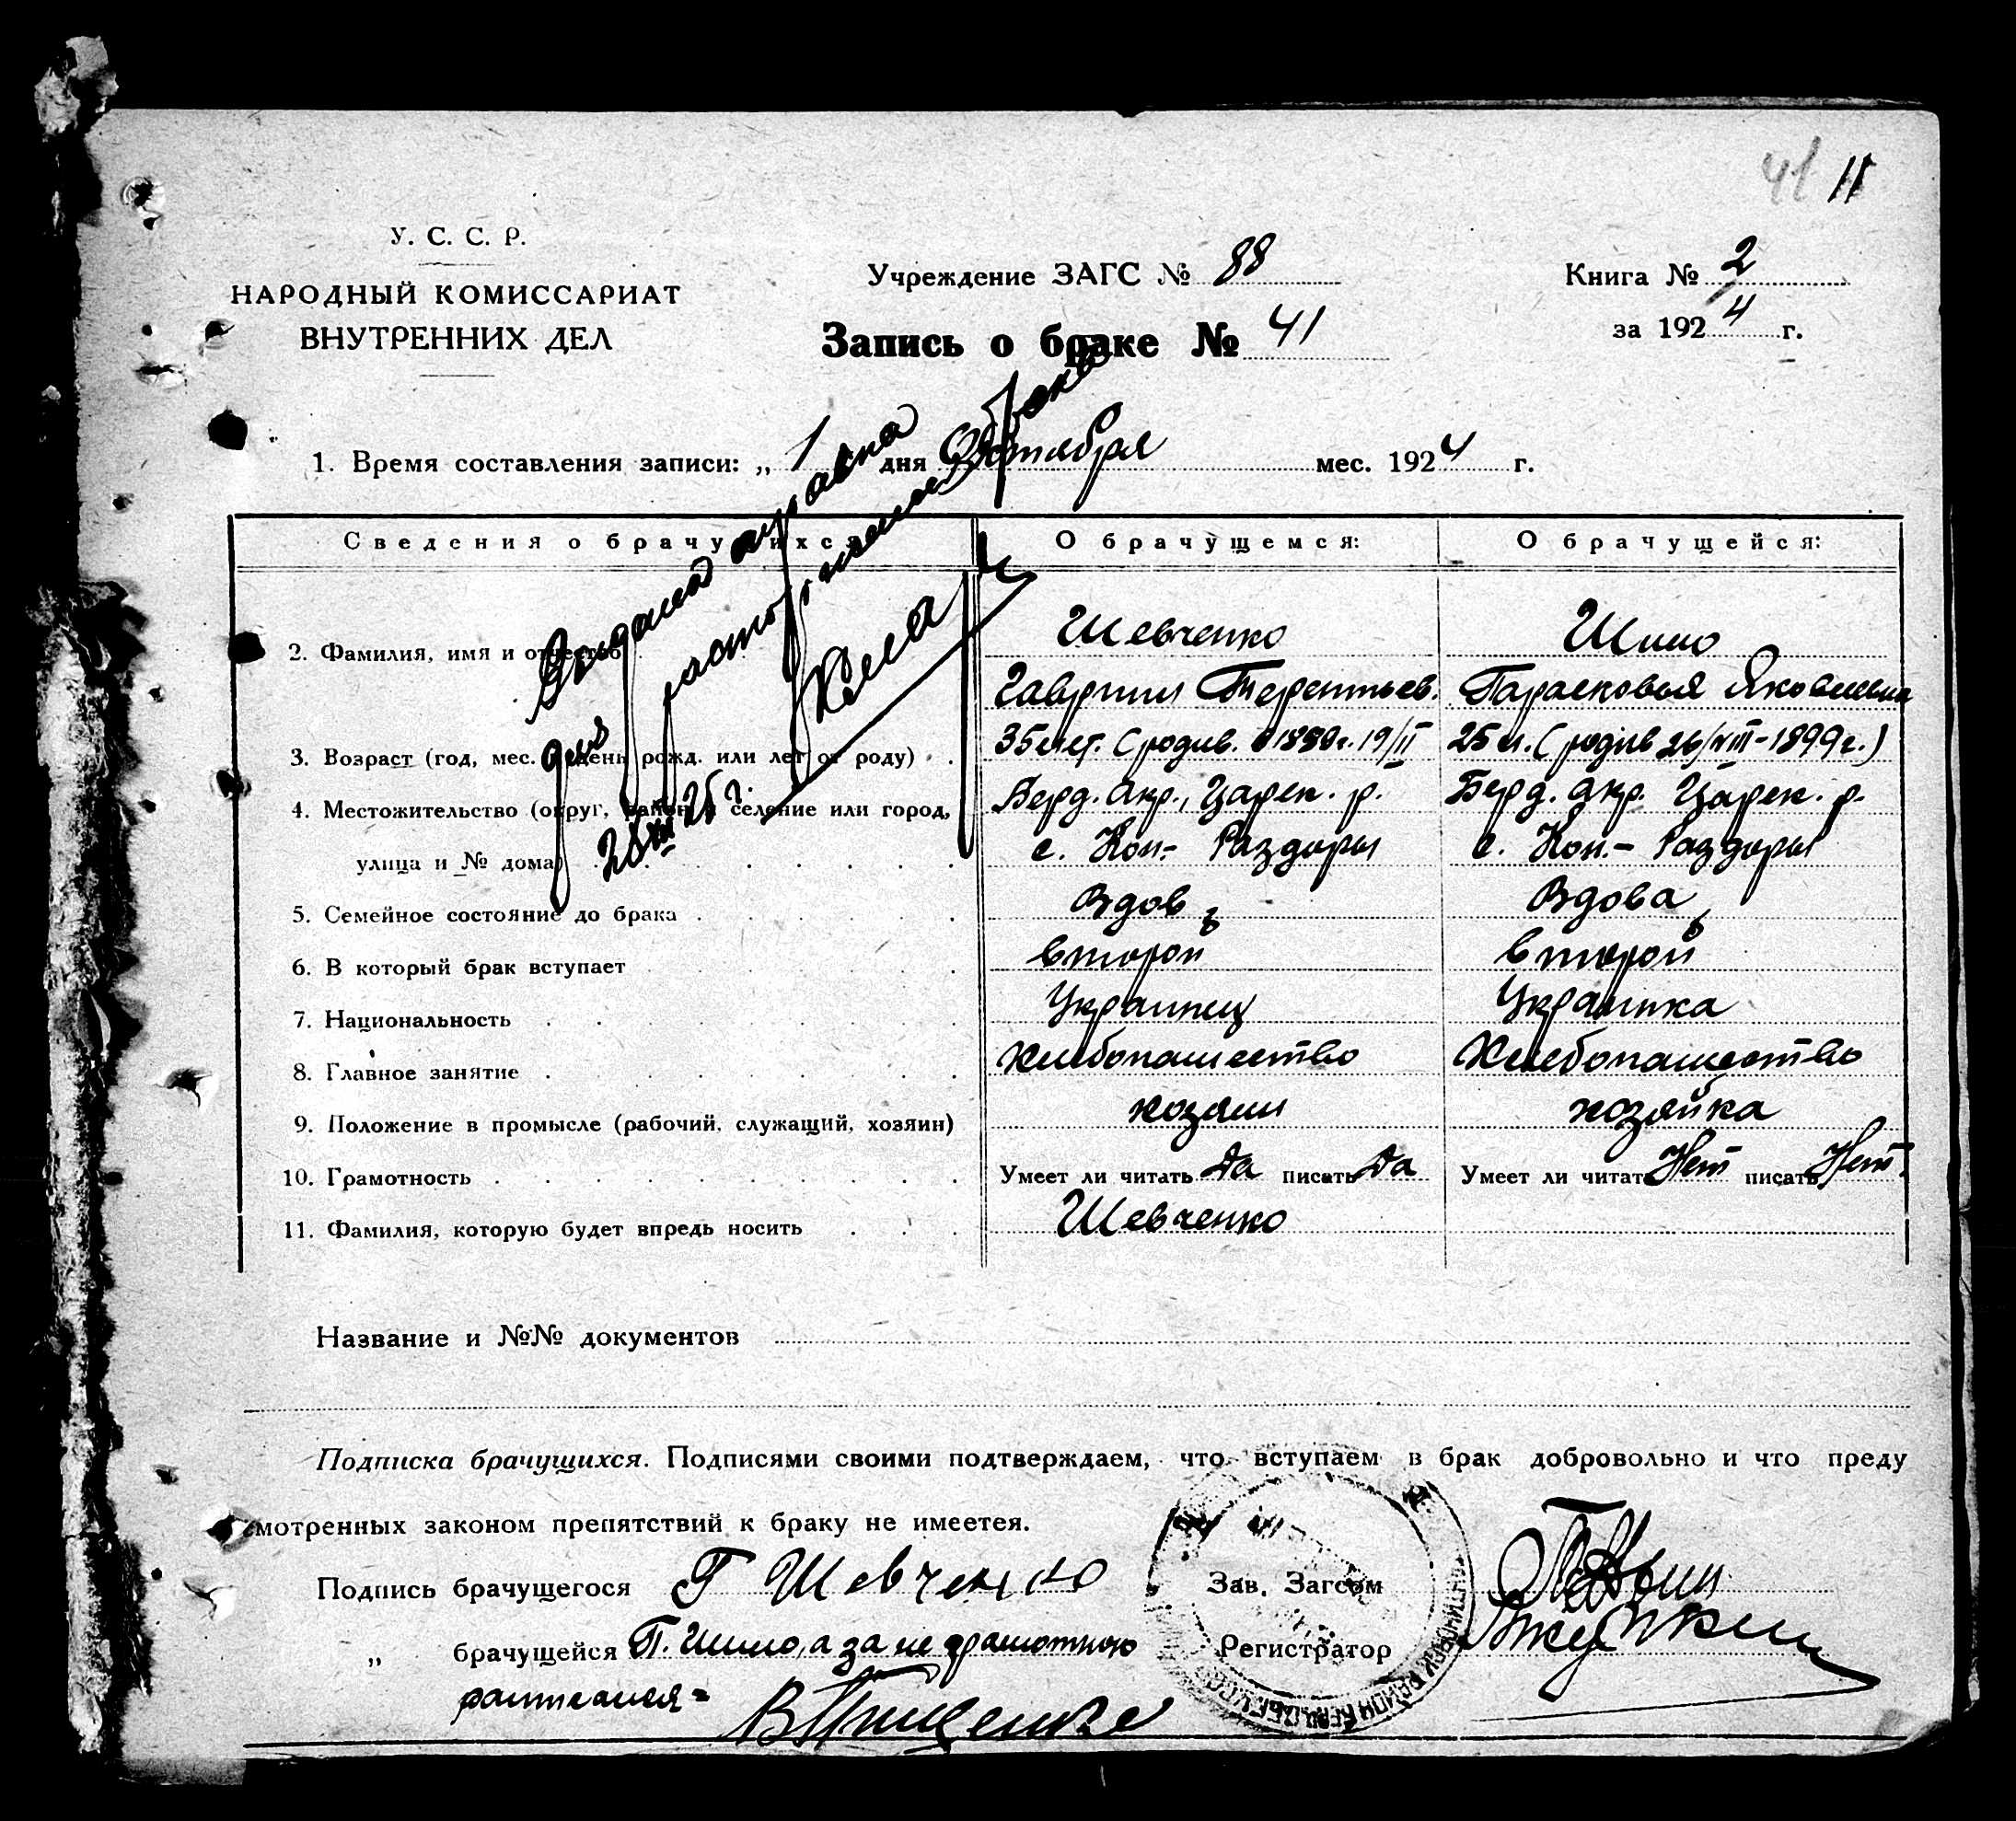 41 11
У. С. С. Р.
НАРОДНЫЙ КОМИССАРИАТ
ВНУТРЕННИХ ДЕЛ
Учреждение ЗАГС № 88
Запись о браке № 41
Книга № 2
за 1924 г.
1. Время составления записи: „ 1 дня Октября мес. 1924 г.
Сведения о брачущихся
О брачущемся:
О брачущейся:
2. Фамилия, имя и отчество
Шевченко
Гавриил Терентьев.
Шило
Парасковья Яковлевна
3. Возраст (год, мес. и день рожд. или лет от роду)
35 лет. (родив. в 1889 г. 19/II
25 л. (родив 26/VIII-1899 г.)
4. Местожительство (округ, район и селение или город,
улица и № дома)
Берд. окр., Царек. р.
с. Кон.- Раздоры
Берд. окр. Царек. р.
с. Кон.- Раздоры
5. Семейное состояние до брака
Вдов
Вдова
6. В который брак вступает
второй
второй
7. Национальность
Украинец
Украинка
8. Главное занятие
Хлебопашество
Хлебопашество
9. Положение в промысле (рабочий, служащий, хозяин)
хозяин
хозяйка
10. Грамотность
Умеет ли читать Да писать Да
Умеет ли читать Нет писать Нет.
11. Фамилия, которую будет впредь носить
Шевченко
Выдана справка
для расторжения брака
28/XII 25 г.
Название и №№ документов
Подписка брачущихся. Подписями своими подтверждаем, что вступаем в брак добровольно и что преду
смотренных законом препятствий к браку не имеетея.
Подпись брачущегося Г Шевченко
Зав. Загсом
„ брачущейся П. Шило, а за не грамотною
Регистратор
расписался=
В Прищенко